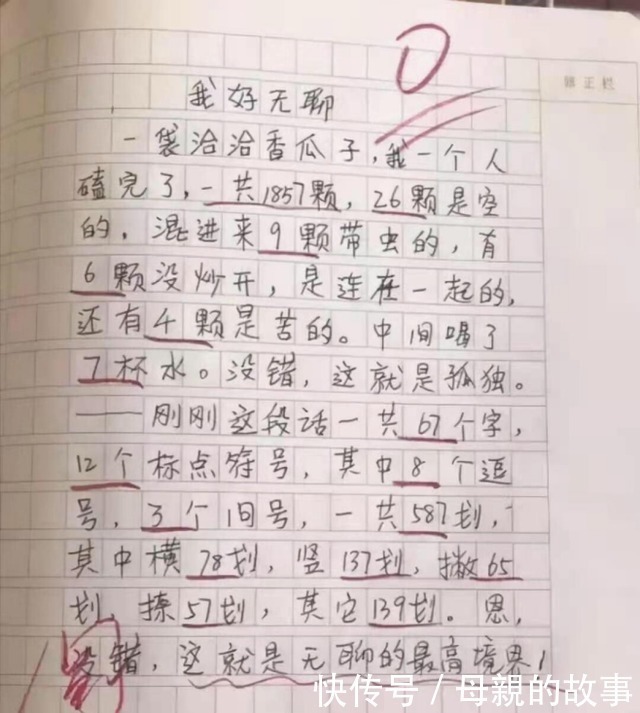 0
修正栏
我好无聊
一袋洽洽香瓜子,我一个人
磕完了,一共1857颗,26颗是空
的,混进来9颗带虫的,有
6颗没炒开,是连在一起的,
还有4颗是苦的。中间喝了
7杯水。没错,这就是孤独。
——刚刚这段话一共67个字,
12个标点符号,其中8个逗
号,3个句号,一共587划,
其中横78划,竖137划,撇65
划,捺57划,其它139划。恩,
没错,这就是无聊的最高境界!
快传号/母親的故事